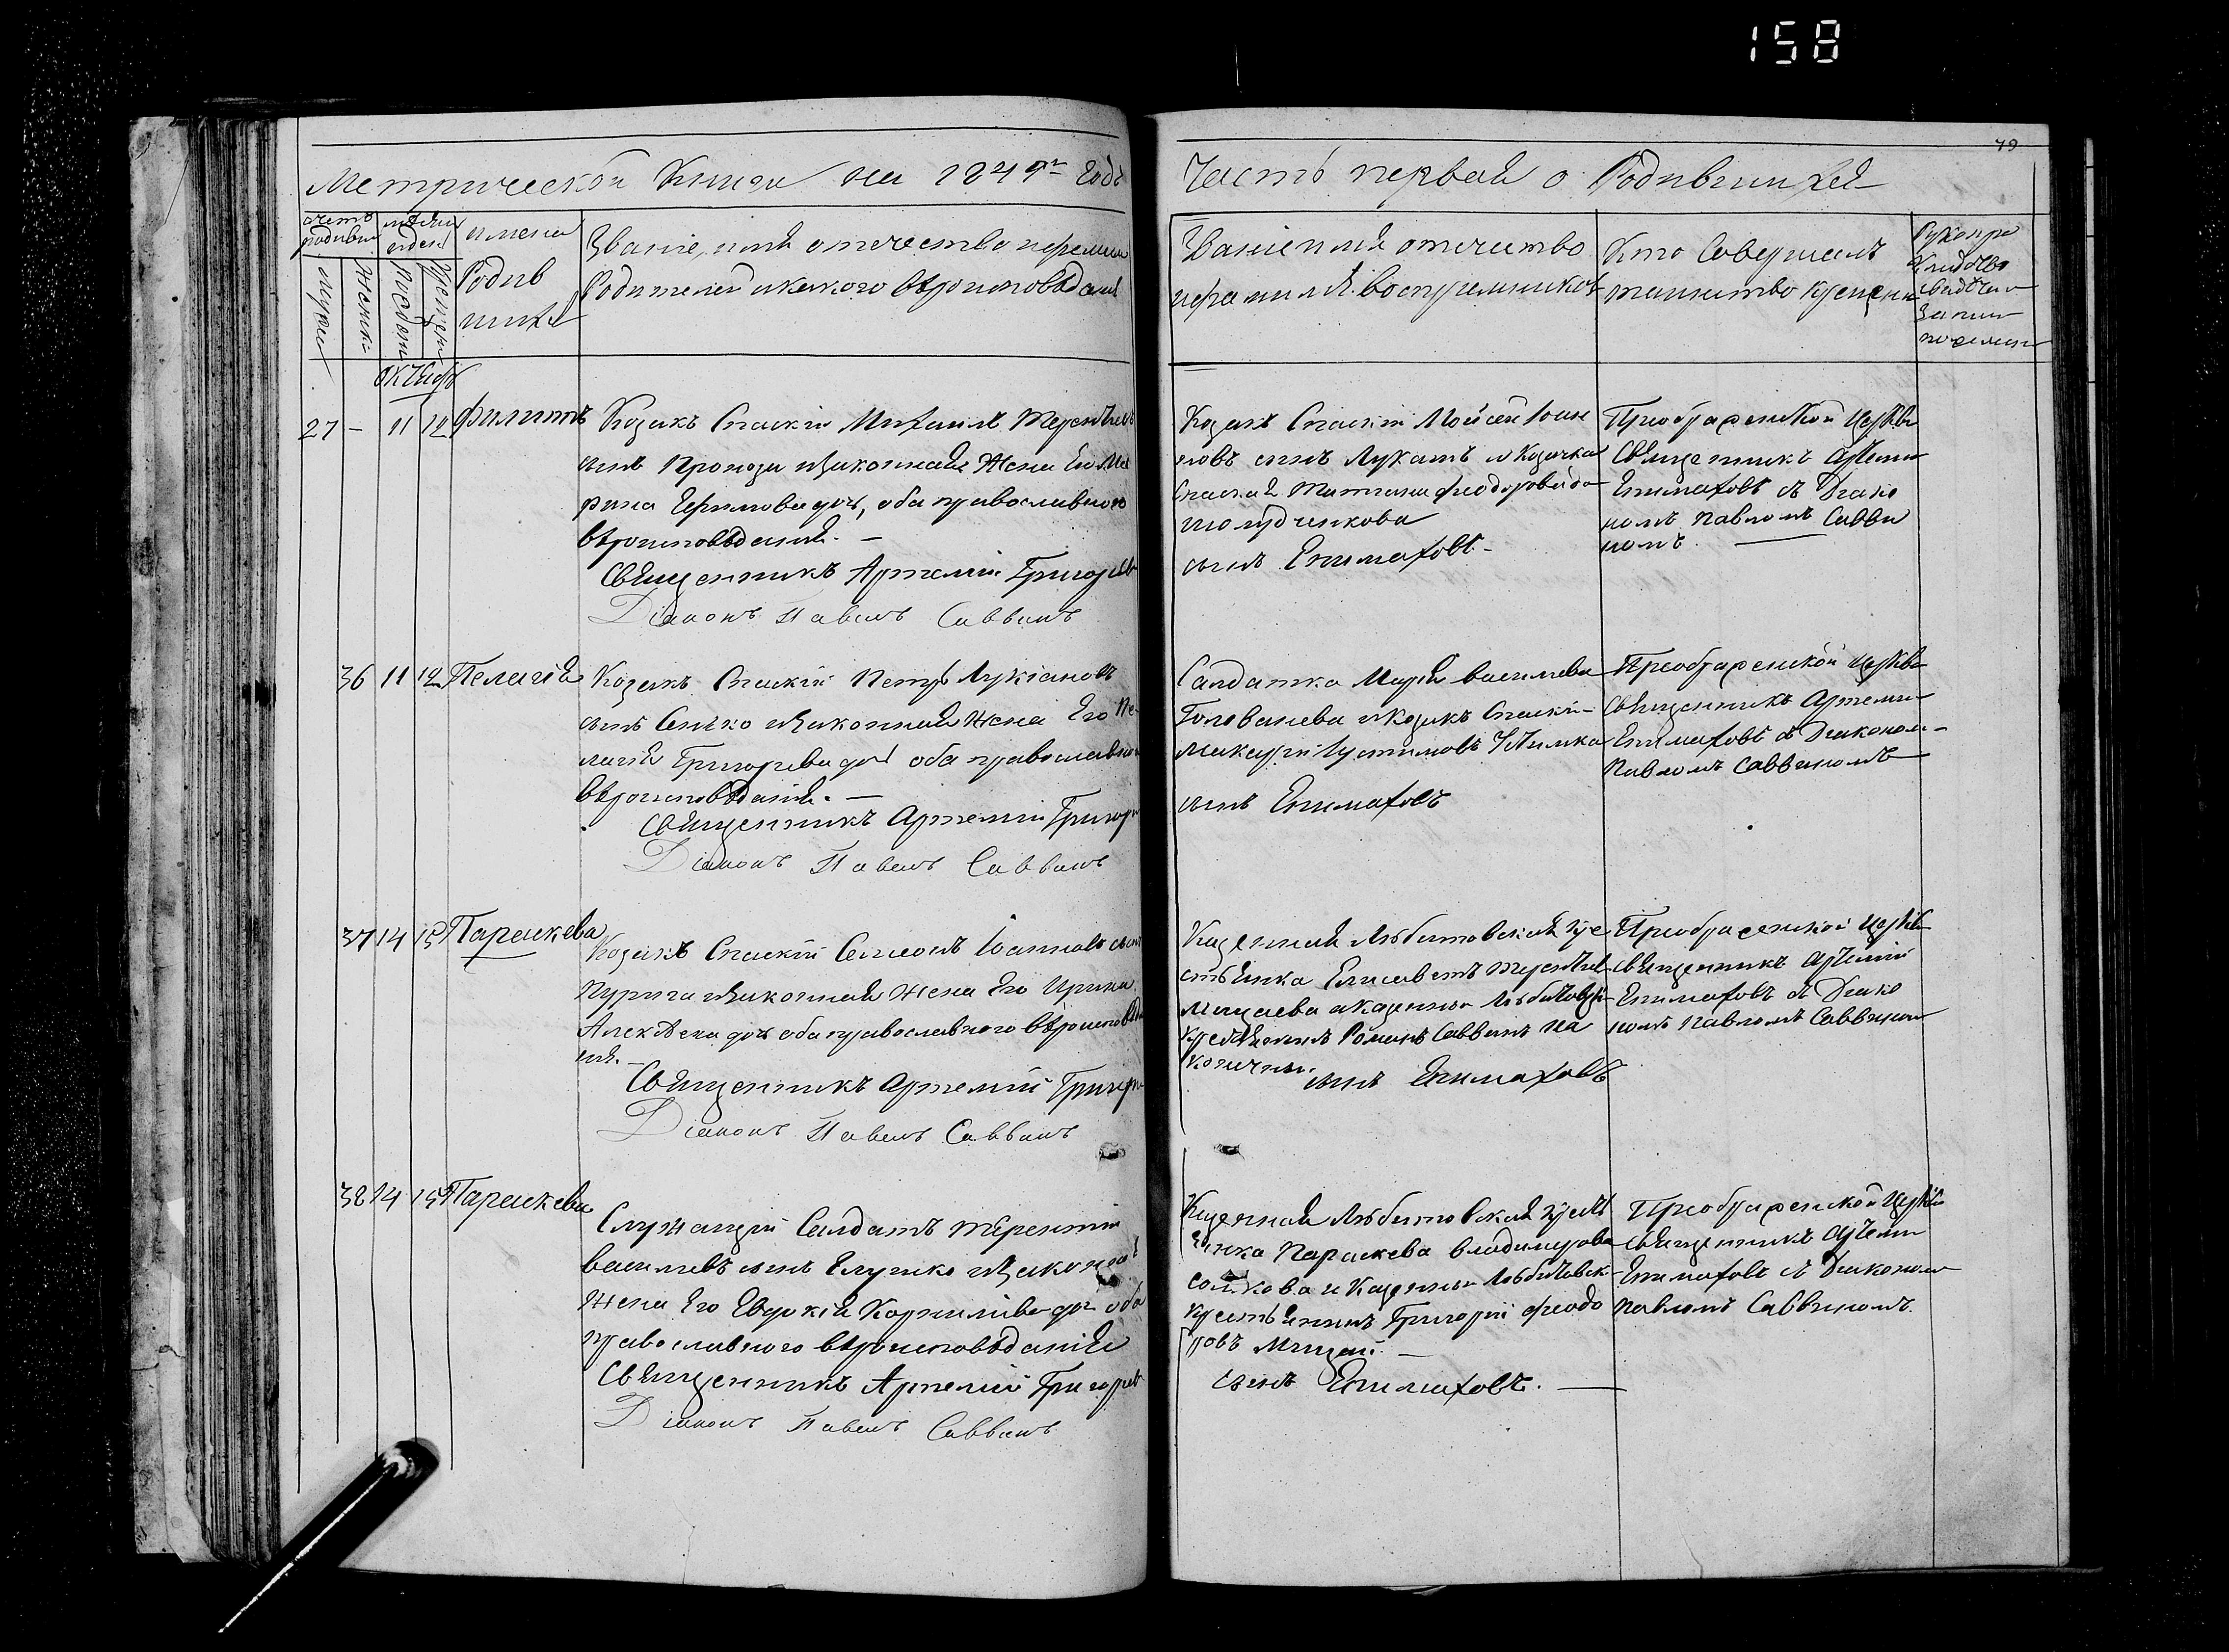 158
49
Метрической Книги на 1849й Годъ
Часть первая о Родившихся
счетъ родивши
мѣсяцъ и день
имена
Родив
шихся
Мужеск
Женск
Рожден
Крещен
Званіе, имя отечество и фамилія
Родителей и какого вѣроисповѣданія
Званіе имя отчество
и фамилія воспріемниковъ
Кто Совершалъ
таинство крещенія
Октябрь
27 – 11 12 Филиппъ
Козакъ Спаскій Михаилъ Терентіевъ
сынъ Проноза и законная Жена Его Ма
рина Ефимова доч, оба православнаго
вѣроисповѣданія. —
Священникъ Артемій Григорьевъ
Діаконъ Павелъ Саввинъ
Козакъ Спаскій Мойсей Іоан
новъ сынъ Лукашъ и Козачка
Спаская Татіана Феодорова до
сынъ Епимаховъ
Преображенской Церкви
Священникъ Артеми
Епимаховъ съ Діако
номъ Павломъ Савви
номъ. —
36 11 12 Пелагія
Козакъ Спаскій Петръ Лукіановъ
сынъ Сенько и законная Жена Его Пе-
лагія Григорьева доч оба православнаго
вѣроисповѣданія. —
Священникъ Артемій Григорь
Діаконъ Павелъ Саввинъ
Салдатка Марія Васильева
Голованева и козакъ Спаскій
Макарій Іустиновъ
сынъ Епимаховъ
Преображенской Церкви
Священникъ Артемій
Епимаховъ съ Діакономъ
Павломъ Саввиномъ
37 14 15 Параскева
Козакъ Спаскій Симеонъ Іоанновъ сынъ
Пурига и законная Жена Его Ирина
Алексѣева доч оба православного вѣроисповѣда
нія.
Священникъ Артемій Григорь
Діаконъ Павелъ Саввинъ
Казенная Любитовская кре
стьянка Елисаветъ Терентіев
Мицаева и казенный Любитовскій
крестьянинъ Романъ Саввинъ На
конечный.
сынъ Епимаховъ
Преображенской Церкв
священникъ Артемій
Епимаховъ съ Діако
номъ Павломъ Саввином
38 14 15 Параскева
Служащій Салдатъ Терентій
Васильевъ сынъ и законная
Жена Его Евдокія Корниліева доч оба
православного вѣроисповѣданія
Священникъ Артемій Григорьев
Діаконъ Павелъ Саввинъ
Казенная Любитовская крест
янка Параскева Владимирова
и Казенный Любитовск
крестьянинъ Григорій Феодо
ровъ Мицай. —
сынъ Епимаховъ. —
Преображенской Церкви
священникъ Артеми
Епимаховъ съ Діакономъ
Павломъ Саввиномъ.